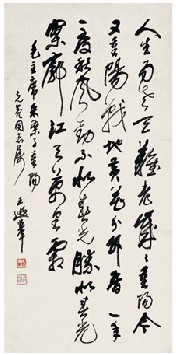 人生易老天难老岁岁重阳今
又重阳战地黄花分外香一年
一度秋风劲不似春光胜似春光
寥廓江天万里霜
毛主席采桑子重阳